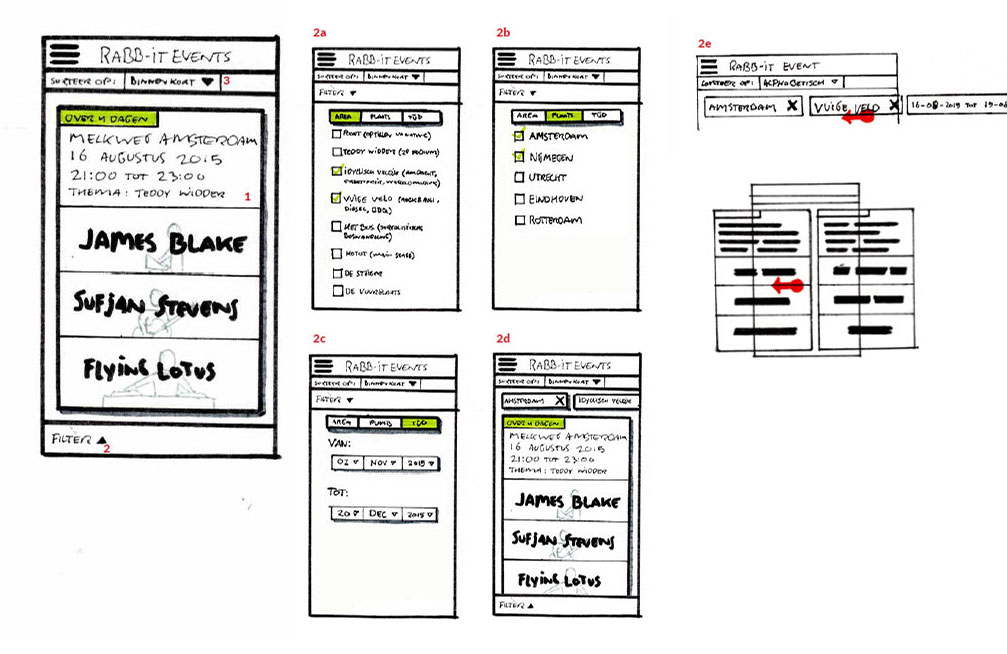 RABB-IT EVENTS
SORTEER OP: BINNENKORT 3
OVER 4 DAGEN
MELKWEG AMSTERDAM
16 AUGUSTUS 2015
21:00 TOT 23:00
THEMA: TEDDY WIDDER
1
JAMES BLAKE
SUFJAN STEVENS
FLYING LOTUS
FILTER
2
2a
RABB-IT EVENTS
SORTEER OP: BINNENKORT
FILTER
AREA PLAATS TIJD
TEDDY WIDDER
IDYLLISCH VELDJE
VUIGE VELD
HET BOS
DE STEIGER
DE VUURPLAATS
2b
RABB-IT EVENTS
SORTEER OP: BINNENKORT
FILTER
AREA PLAATS TIJD
AMSTERDAM
NIJMEGEN
UTRECHT
EINDHOVEN
ROTTERDAM
2c
RABB-IT EVENTS
SORTEER OP: BINNENKORT
FILTER
AREA TIJD
VAN:
02 NOV 2015
TOT:
20 DEC 2015
2d
RABB-IT EVENTS
SORTEER OP: BINNENKORT
AMSTERDAM X IDYLLISCH VELDJE
OVER 4 DAGEN
MELKWEG AMSTERDAM
16 AUGUSTUS 2015
21:00 TOT 23:00
THEMA: TEDDY WIDDER
JAMES BLAKE
SUFJAN STEVENS
FLYING LOTUS
FILTER
2e
RABB-IT EVENT
SORTEER OP: ALPHABETISCH
AMSTERDAM X VUIGE VELD X 16-08-2015 TOT 19-08